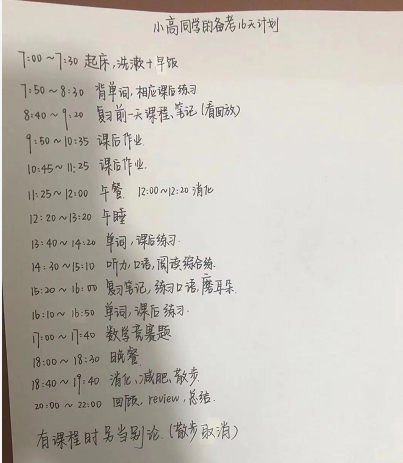 小高同学的备考16天计划
7:00～7:30 起床,洗漱+早饭
7:50～8:30 背单词,相应课后练习
8:40～9:20 复习前一天课程、笔记(看回放)
9:50～10:35 课后作业.
10:45～11:25 课后作业.
11:25～12:00 午餐. 12:00～12:20 消化
12:20～13:20 午睡
13:40～14:20 单词,课后练习.
14:30～15:10 听力,口语,阅读综合练.
15:20～16:00 复习笔记,练习口语,磨耳朵.
16:10～16:50 单词,课后练习.
17:00～17:40 数学竞赛题
18:00～18:30 晚餐
18:40～19:40 消化、减肥、散步.
20:00～22:00 回顾, review, 总结.
有课程时另当别论.(散步取消)